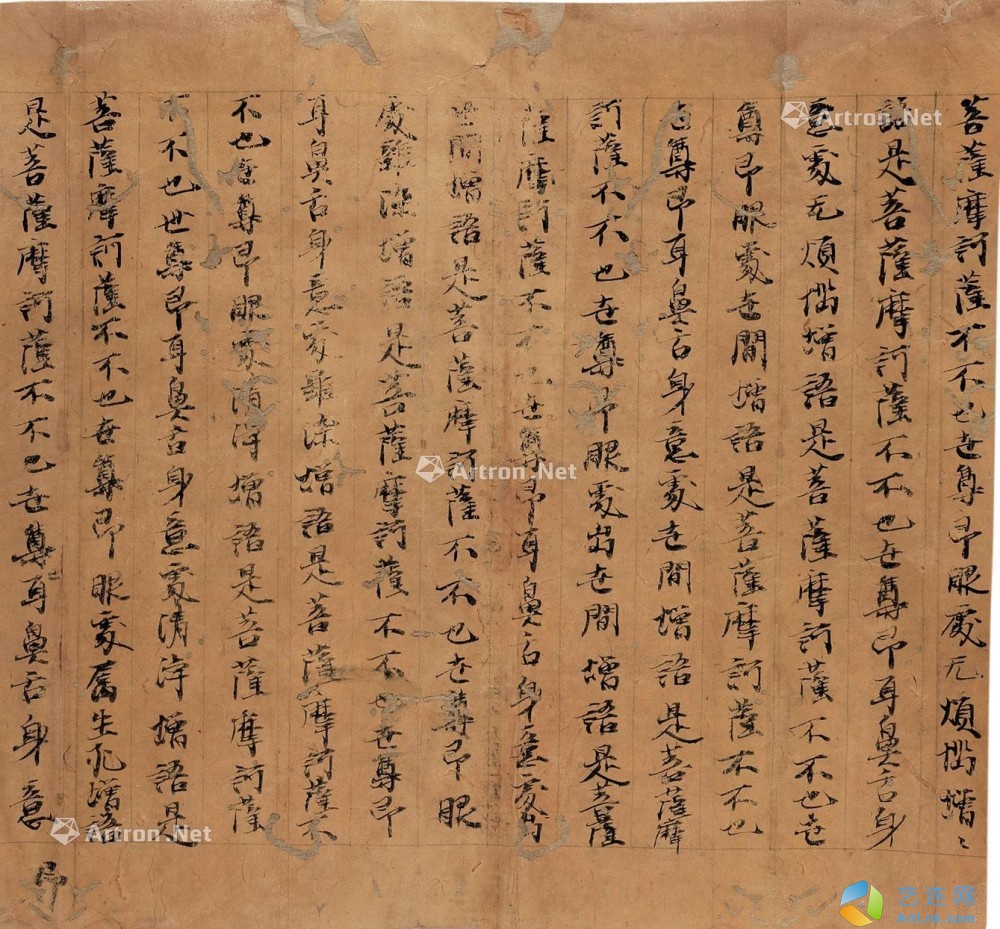 菩薩摩訶薩不不也世尊即眼處无煩惱增〻
語是菩薩摩訶薩不不也世尊即耳鼻舌身
意處无煩惱增語是菩薩摩訶薩不不也世
尊即眼處世間增語是菩薩摩訶薩不不也
世尊即耳鼻舌身意處世間增語是菩薩摩
訶薩不不也世尊即眼處出世間增語是菩薩
薩摩訶薩不不也世尊即耳鼻舌身意處出
世間增語是菩薩摩訶薩不不也世尊即眼
處雜染增語是菩薩摩訶薩不不也世尊即
耳鼻舌身意處雜染增語是菩薩摩訶薩不
不也世尊即眼處清淨增語是菩薩摩訶薩
不不也世尊即耳鼻舌身意處清淨增語是
菩薩摩訶薩不不也世尊即眼處屬生死增語
是菩薩摩訶薩不不也世尊耳鼻舌身意
即
Artron.Net
Artron.Net
Artron.Net
艺庄网